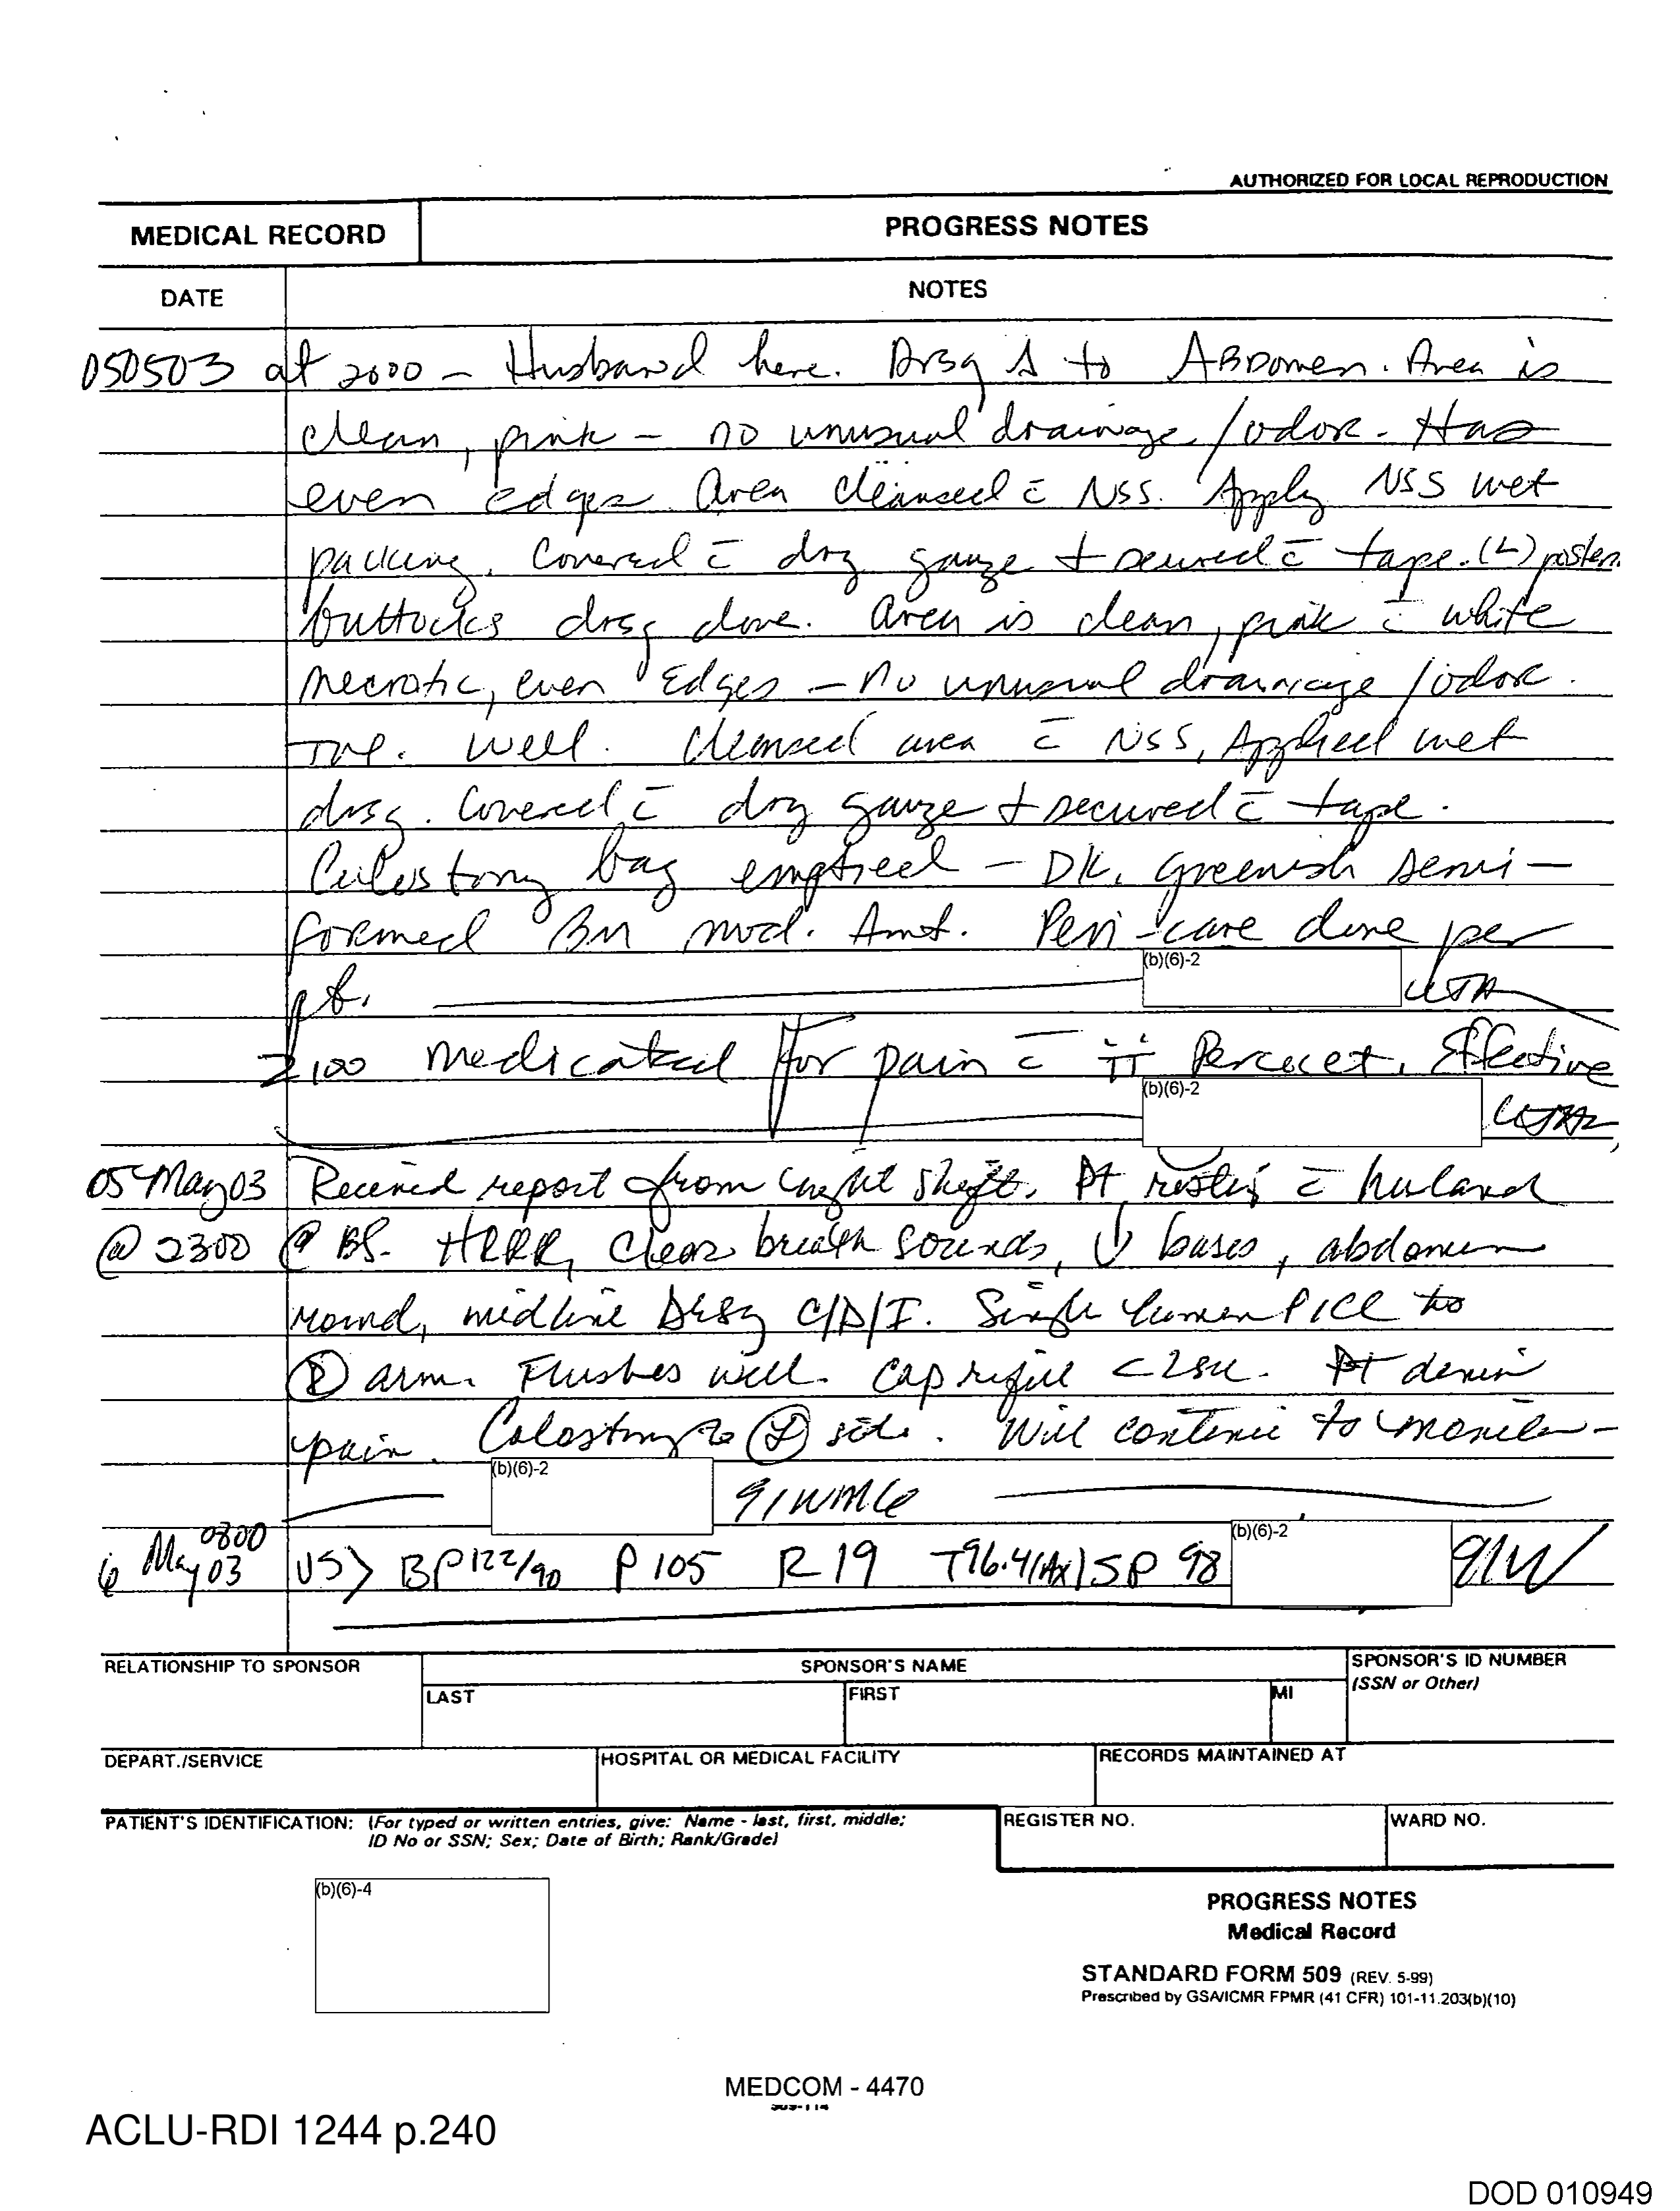 AUTHORIZED FOR LOCAL REPRODUCTION
MEDICAL RECORD
PROGRESS NOTES
DATE
NOTES
050503 at 2000 - Husband here. Drsg Δ to ABDomen. Area is
clean, pink - no unusual drainage/odor. Has
even edges. Area cleansed c̄ NSS. Apply NSS wet
packing. Covered c̄ dry gauze + secured c̄ tape. (L) poster.
buttocks drsg done. Area is clean, pink c̄ white
necrotic, even Edges - no unusual drainage/odor.
Tol. well. Cleansed area c̄ NSS, Applied wet
drsg. Covered c̄ dry gauze + secured c̄ tape.
Colostomy bag emptied - DK. greenish semi-
formed BM mod. Amt. Peri-care done per
pt.
(b)(6)-2
2100 medicated for pain c̄ ii Percocet. Effective
(b)(6)-2
05 May 03 Received report from shift. Pt resting c̄ husband
@ 2300 @ BS. HRRR, Clear breath sounds, ↓ bases, abdomen
round, midline Drsg C/D/I. Single lumen PICC to
arm. Flushes well. Cap refill <2sec. Pt denies
pain. Colostomy to (L) side. Will continue to monitor -
(b)(6)-2
91WM6
6 May 03 0800 VS> BP 122/90 P 105 R 19 T96.4(Ax) SP 98
(b)(6)-2
91W
RELATIONSHIP TO SPONSOR
SPONSOR'S NAME
SPONSOR'S ID NUMBER
(SSN or Other)
LAST
FIRST
MI
DEPART./SERVICE
HOSPITAL OR MEDICAL FACILITY
RECORDS MAINTAINED AT
PATIENT'S IDENTIFICATION: (For typed or written entries, give: Name - last, first, middle;
ID No or SSN; Sex; Date of Birth; Rank/Grade)
REGISTER NO.
WARD NO.
(b)(6)-4
PROGRESS NOTES
Medical Record
STANDARD FORM 509 (REV. 5-99)
Prescribed by GSA/ICMR FPMR (41 CFR) 101-11.203(b)(10)
MEDCOM - 4470
ACLU-RDI 1244 p.240
DOD 010949